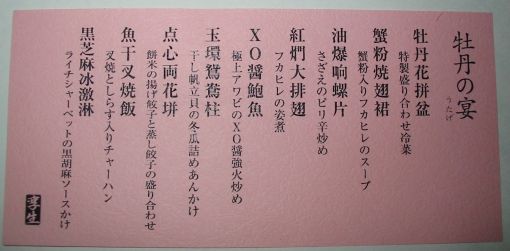 牡丹の宴
うたげ
牡丹花拼盆
特製盛り合わせ冷菜
蟹粉焼翅裙
蟹粉入りフカヒレのスープ
油爆响螺片
さざえのピリ辛炒め
紅燜大排翅
フカヒレの姿煮
XO醤鮑魚
極上アワビのXO醤強火炒め
玉環鴛鴦柱
干し帆立貝の冬瓜詰めあんかけ
点心両花拼
餅米の揚げ餃子と蒸し餃子の盛り合わせ
魚干叉焼飯
叉焼としらす入りチャーハン
黒芝麻冰激淋
ライチシャーベットの黒胡麻ソースかけ